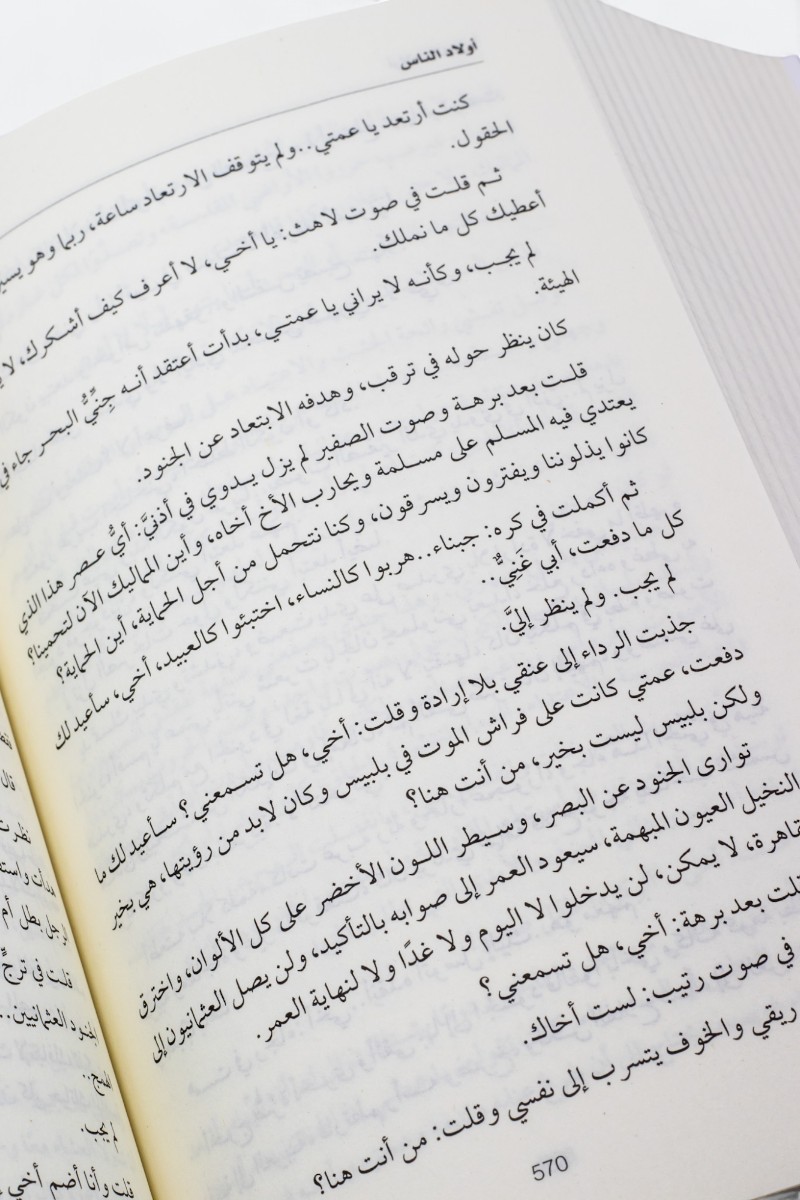 أولاد الناس
كنت أرتعد يا عمتي..ولم يتوقف الارتعاد ساعة، ربما وهو يسير
الحقول.
ثم قلت في صوت لاهث: يا أخي، لا أعرف كيف أشكرك، لا
أعطيك كل ما نملك.
لم يجب، وكأنه لا يراني يا عمتي، بدأت أعتقد أنه جِنِّيُّ البحر جاء في
الهيئة.
كان ينظر حوله في ترقب، وهدفه الابتعاد عن الجنود.
قلت بعد برهة وصوت الصفير لم يزل يدوي في أذنيَّ: أيُّ عصر هذا الذي
يعتدي فيه المسلم على مسلمة ويحارب الأخ أخاه، وأين المماليك الآن لتحمينا؟
كانوا يذلوننا ويفترون ويسرقون، وكنا نتحمل من أجل الحماية، أين الحماية؟
ثم أكملت في كره: جبناء..هربوا كالنساء، اختبئوا كالعبيد، أخي، سأعيد لك
كل ما دفعت، أبي غَنِيٌّ..
لم يجب. ولم ينظر إليَّ.
جذبت الرداء إلى عنقي بلا إرادة وقلت: أخي، هل تسمعني؟ سأعيد لك ما
دفعت، عمتي كانت على فراش الموت في بلبيس وكان لابد من رؤيتها، هي بخير
ولكن بلبيس ليست بخير، من أنت هنا؟
توارى الجنود عن البصر، وسيطر اللون الأخضر على كل الألوان، واخترق
النخيل العيون المبهمة، سيعود العمر إلى صوابه بالتأكيد، ولن يصل العثمانيون إلى
قاهرة، لا يمكن، لن يدخلوا لا اليوم ولا غدًا ولا لنهاية العمر.
قلت بعد برهة: أخي، هل تسمعني؟
في صوت رتيب: لست أخاك.
ريقي والخوف يتسرب إلى نفسي وقلت: من أنت هنا؟
570
قال
نظرت
هدأت
لرجل بطل أم
قلت في ترجٍّ
الجنود العثمانيين..
لم يجب.
قلت وأنا أضم أخي